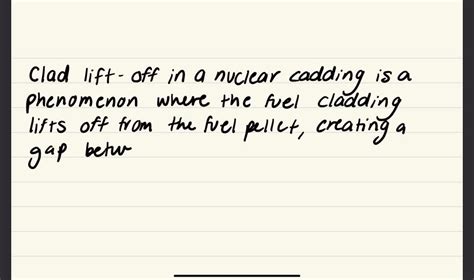 Clad lift-off in a nuclear cadding is a
phenomenon where the fuel cladding
lifts off from the fuel pellet, creating a
gap betw